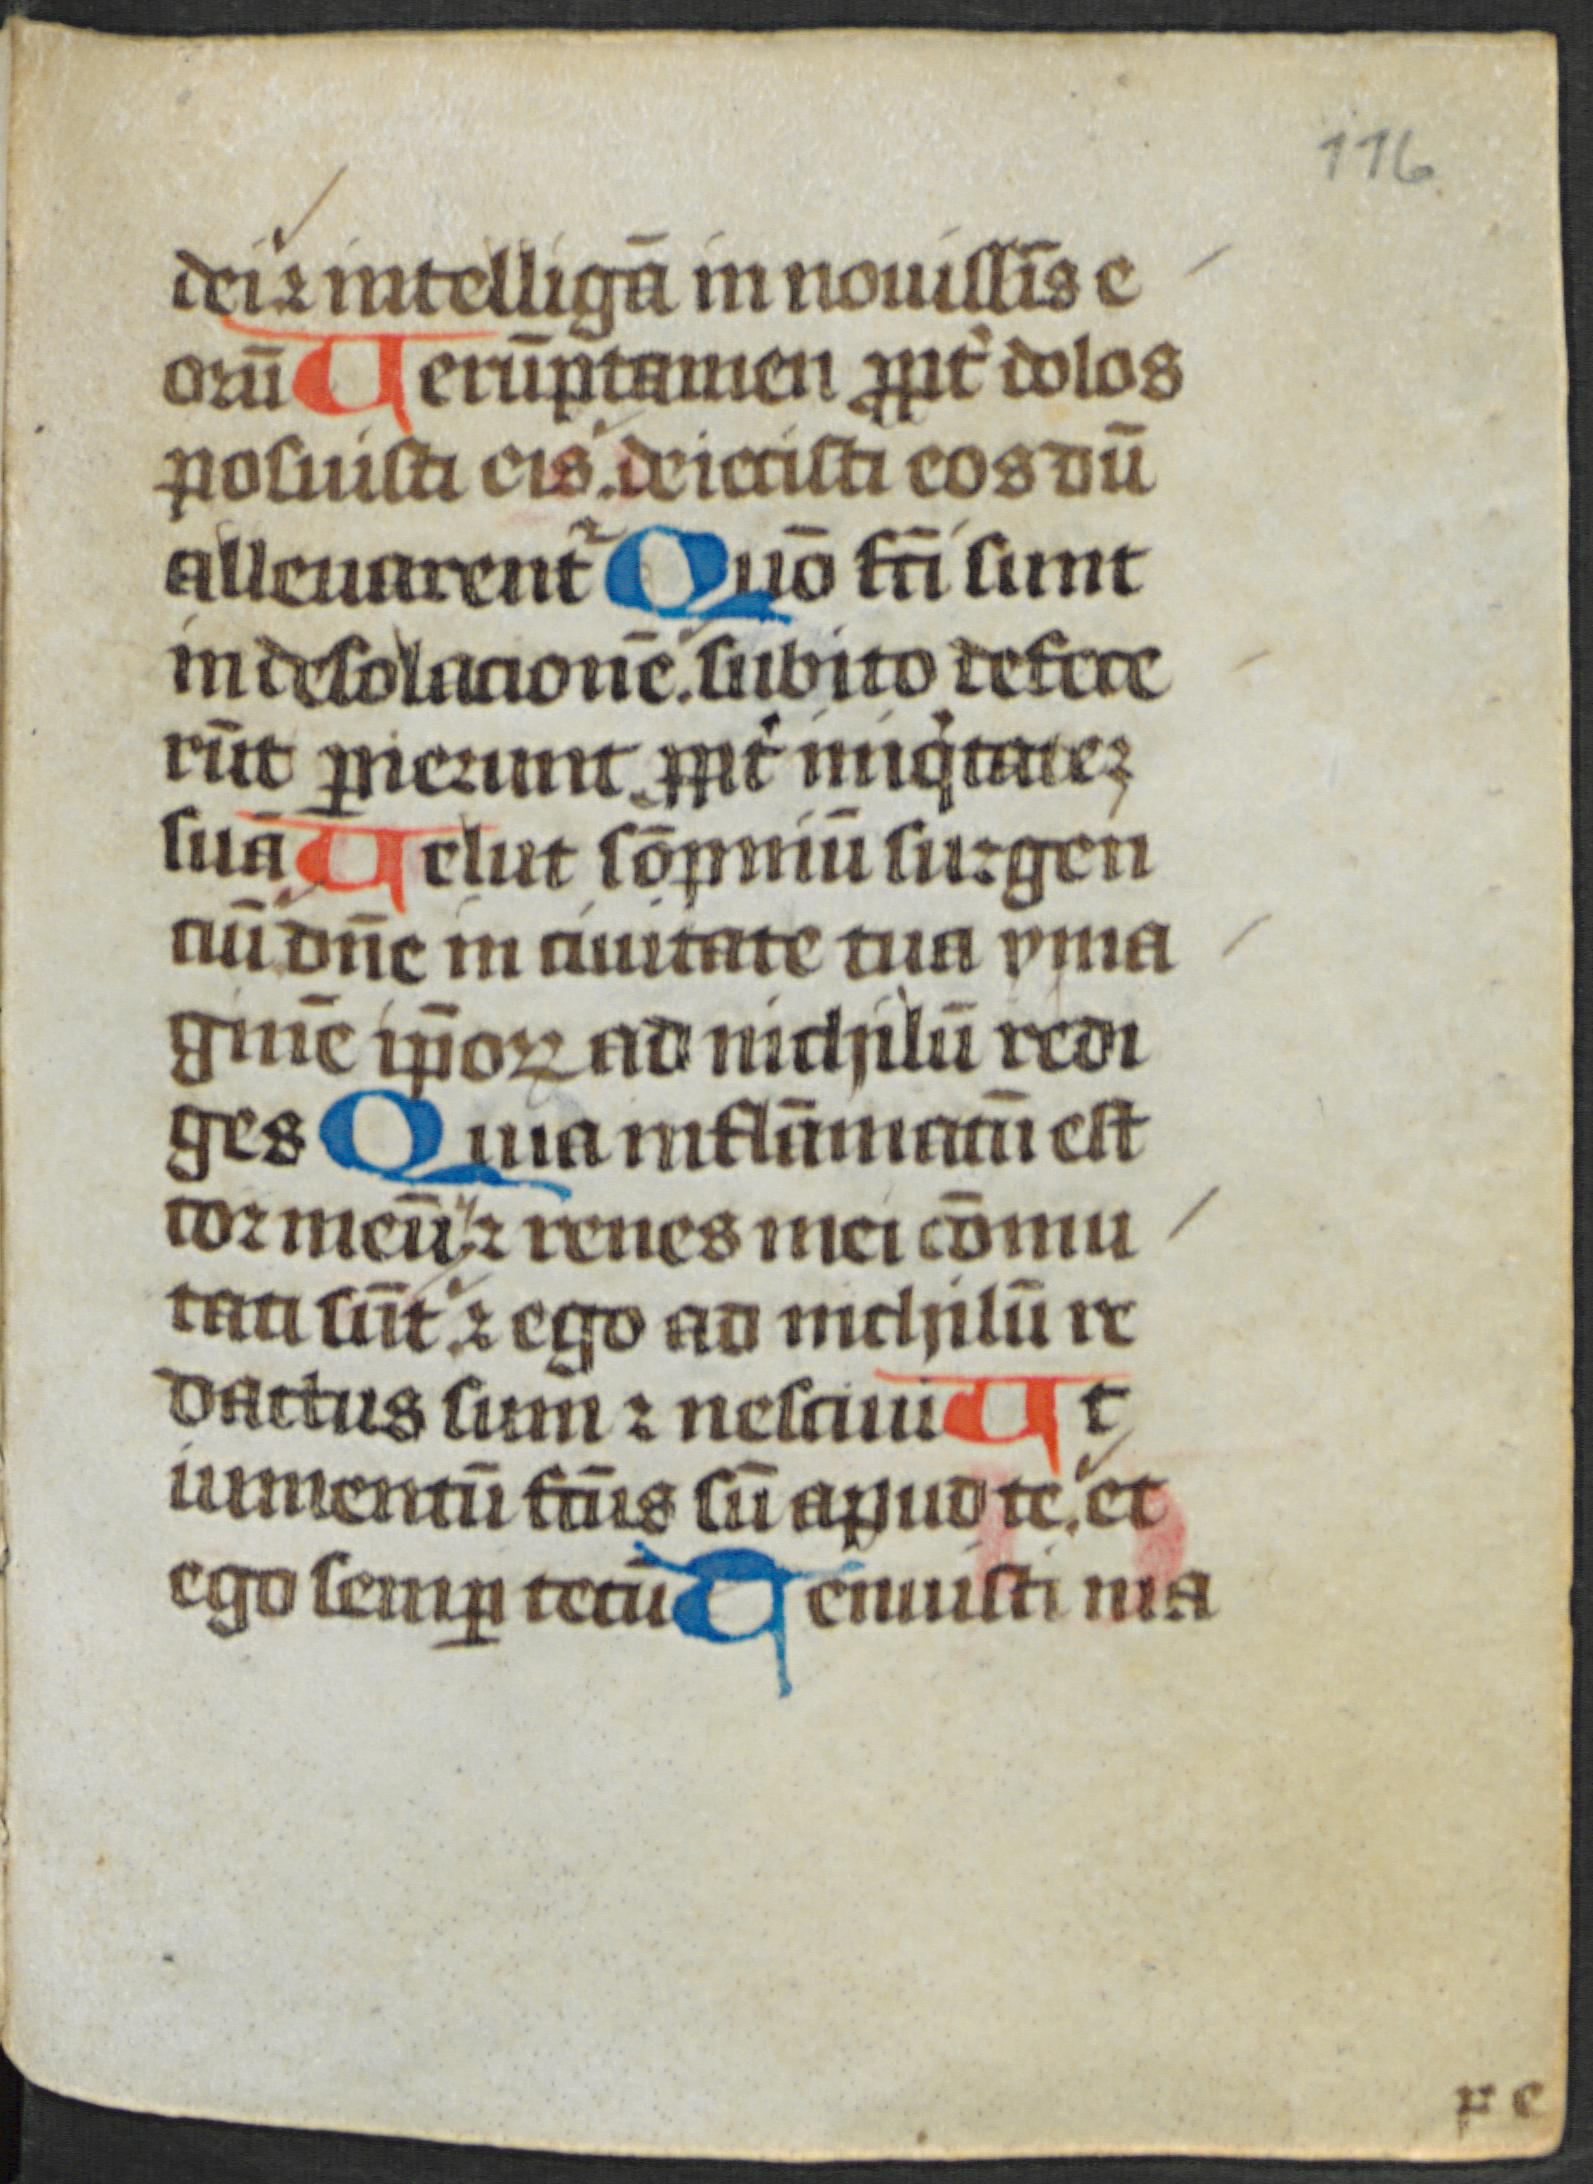 116
dei ⁊ intelligā in nouissīs e
orū Uerūptamen ꝓpt̾ dolos
posuisti eis. deiecisti eos dū
alleuarent᷑ Quō fc̄i sunt
in desolacionē. subito defece
rūt ꝑierunt ꝓpt̾ iniqͥtatez
suā Uelut sōpniū surgen
ciū dn̄e in ciuitate tua yma
ginē ip̄oꝝ ad nichilū redi
ges Quia inflāmatū est
cor meū ⁊ renes mei cōmu
tati sūt ⁊ ego ad nichilū re
dactus sum ⁊ nesciui Ut
iumentū fc̄us sū apud te. et
ego semꝑ tecū Tenuisti ma
p e